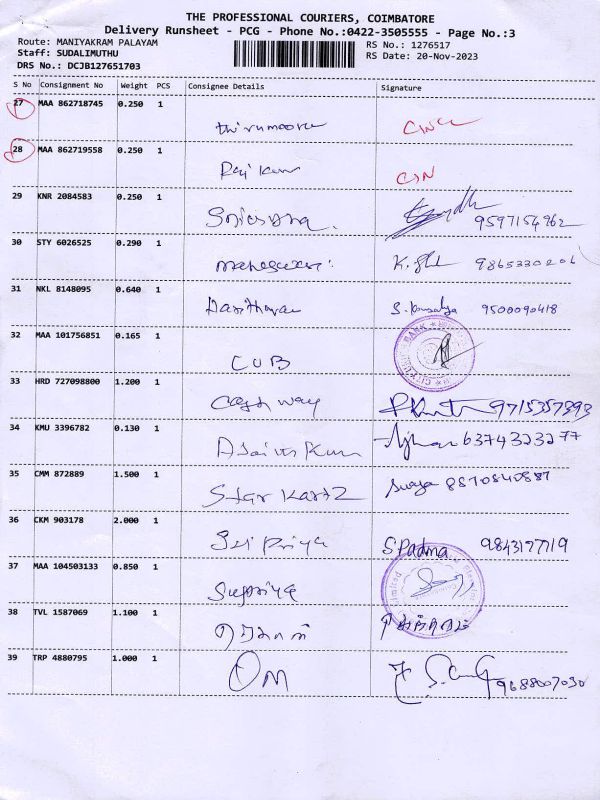 THE PROFESSIONAL COURIERS, COIMBATORE
Delivery Runsheet - PCG - Phone No.:0422-3505555 - Page No.:3
Route: MANIYAKRAM PALAYAM
RS No.: 1276517
Staff: SUDALIMUTHU
RS Date: 20-Nov-2023
DRS No.: DCJB127651703
S No Consignment No Weight PCS Consignee Details Signature
27 MAA 862718745 0.250 1
28 MAA 862719558 0.250 1
Raj Kumar
29 KNR 2084583 0.250 1
9597154962
30 STY 6026525 0.290 1
9865330206
31 NKL 8148095 0.640 1
9500090418
32 MAA 101756851 0.165 1
CUB
33 HRD 727098800 1.200 1
Cash way 9715357393
34 KMU 3396782 0.130 1
6374323277
35 CMM 872889 1.500 1
Star Kartz Surya 8870840887
36 CKM 903178 2.000 1
Sri Priya S Padma 9843177719
37 MAA 104503133 0.850 1
Supriya
38 TVL 1587069 1.100 1
39 TRP 4880795 1.000 1
OM 9688007030